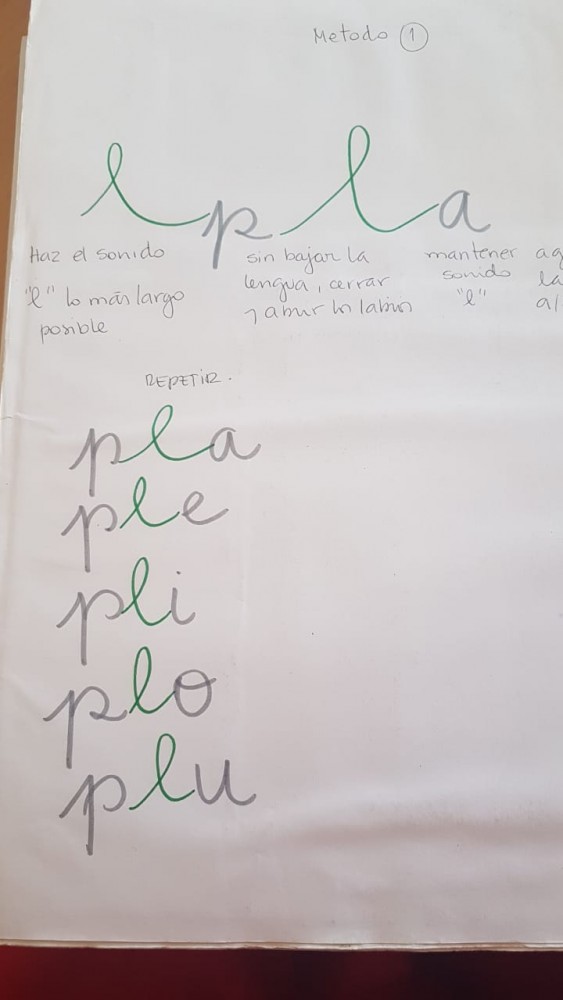 Metodo 1
l p l a
Haz el sonido
"l" lo más largo
posible
sin bajar la
lengua, cerrar
y abrir los labios
mantener
sonido
"l"
la
REPETIR.
pla
ple
pli
plo
plu